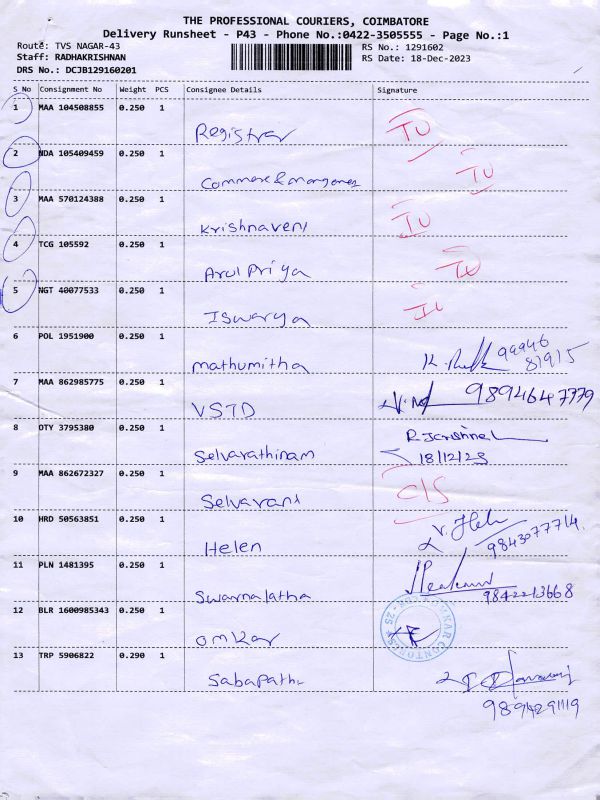 THE PROFESSIONAL COURIERS, COIMBATORE
Delivery Runsheet - P43 - Phone No.:0422-3505555 - Page No.:1
Route: TVS NAGAR-43 RS No.: 1291602
Staff: RADHAKRISHNAN RS Date: 18-Dec-2023
DRS No.: DCJB129160201
S No Consignment No Weight PCS Consignee Details Signature
1 MAA 104508855 0.250 1
Registrar TU
2 NDA 105409459 0.250 1
Commerce & TU
3 MAA 570124388 0.250 1
Krishnaveni TU
4 TCG 105592 0.250 1
Arulpriya
5 NGT 40077533 0.250 1
Iswarya
6 POL 1951900 0.250 1
mathumitha 99946
81915
7 MAA 862985775 0.250 1
VSTD 9894647779
8 OTY 3795380 0.250 1
Selvarathinam 18/12/23
9 MAA 862672327 0.250 1
Selvarani C/S
10 HRD 50563851 0.250 1
Helen V. Helen 9843077714
11 PLN 1481395 0.250 1
Swarnalatha 9842213668
12 BLR 1600985343 0.250 1
omkar
13 TRP 5906822 0.290 1
Sabapathi
9894291119